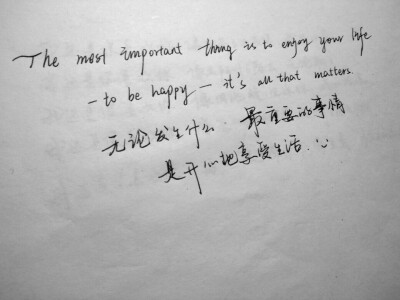 The most important thing is to enjoy your life
- to be happy - it's all that matters.
无论发生什么. 最重要的事情
是开心地享受生活.